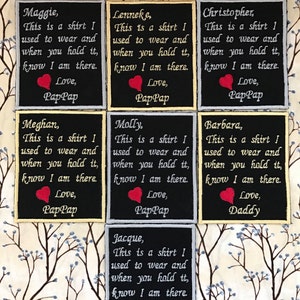 Maggie,
This is a shirt I
used to wear and
when you hold it,
know I am there.
Love,
PapPap
Lenneke,
This is a shirt I
used to wear and
when you hold it,
know I am there.
Love,
PapPap
Christopher,
This is a shirt I
used to wear and
when you hold it,
know I am there.
Love,
PapPap
Meghan,
This is a shirt I
used to wear and
when you hold it,
know I am there.
Love,
PapPap
Molly,
This is a shirt I
used to wear and
when you hold it,
know I am there.
Love,
PapPap
Barbara,
This is a shirt I
used to wear and
when you hold it,
know I am there.
Love,
Daddy
Jacque,
This is a shirt I
used to wear and
when you hold it,
know I am there.
Love,